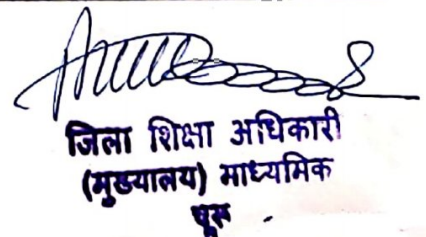 जिला शिक्षा अधिकारी
(मुख्यालय) माध्यमिक
चूरू